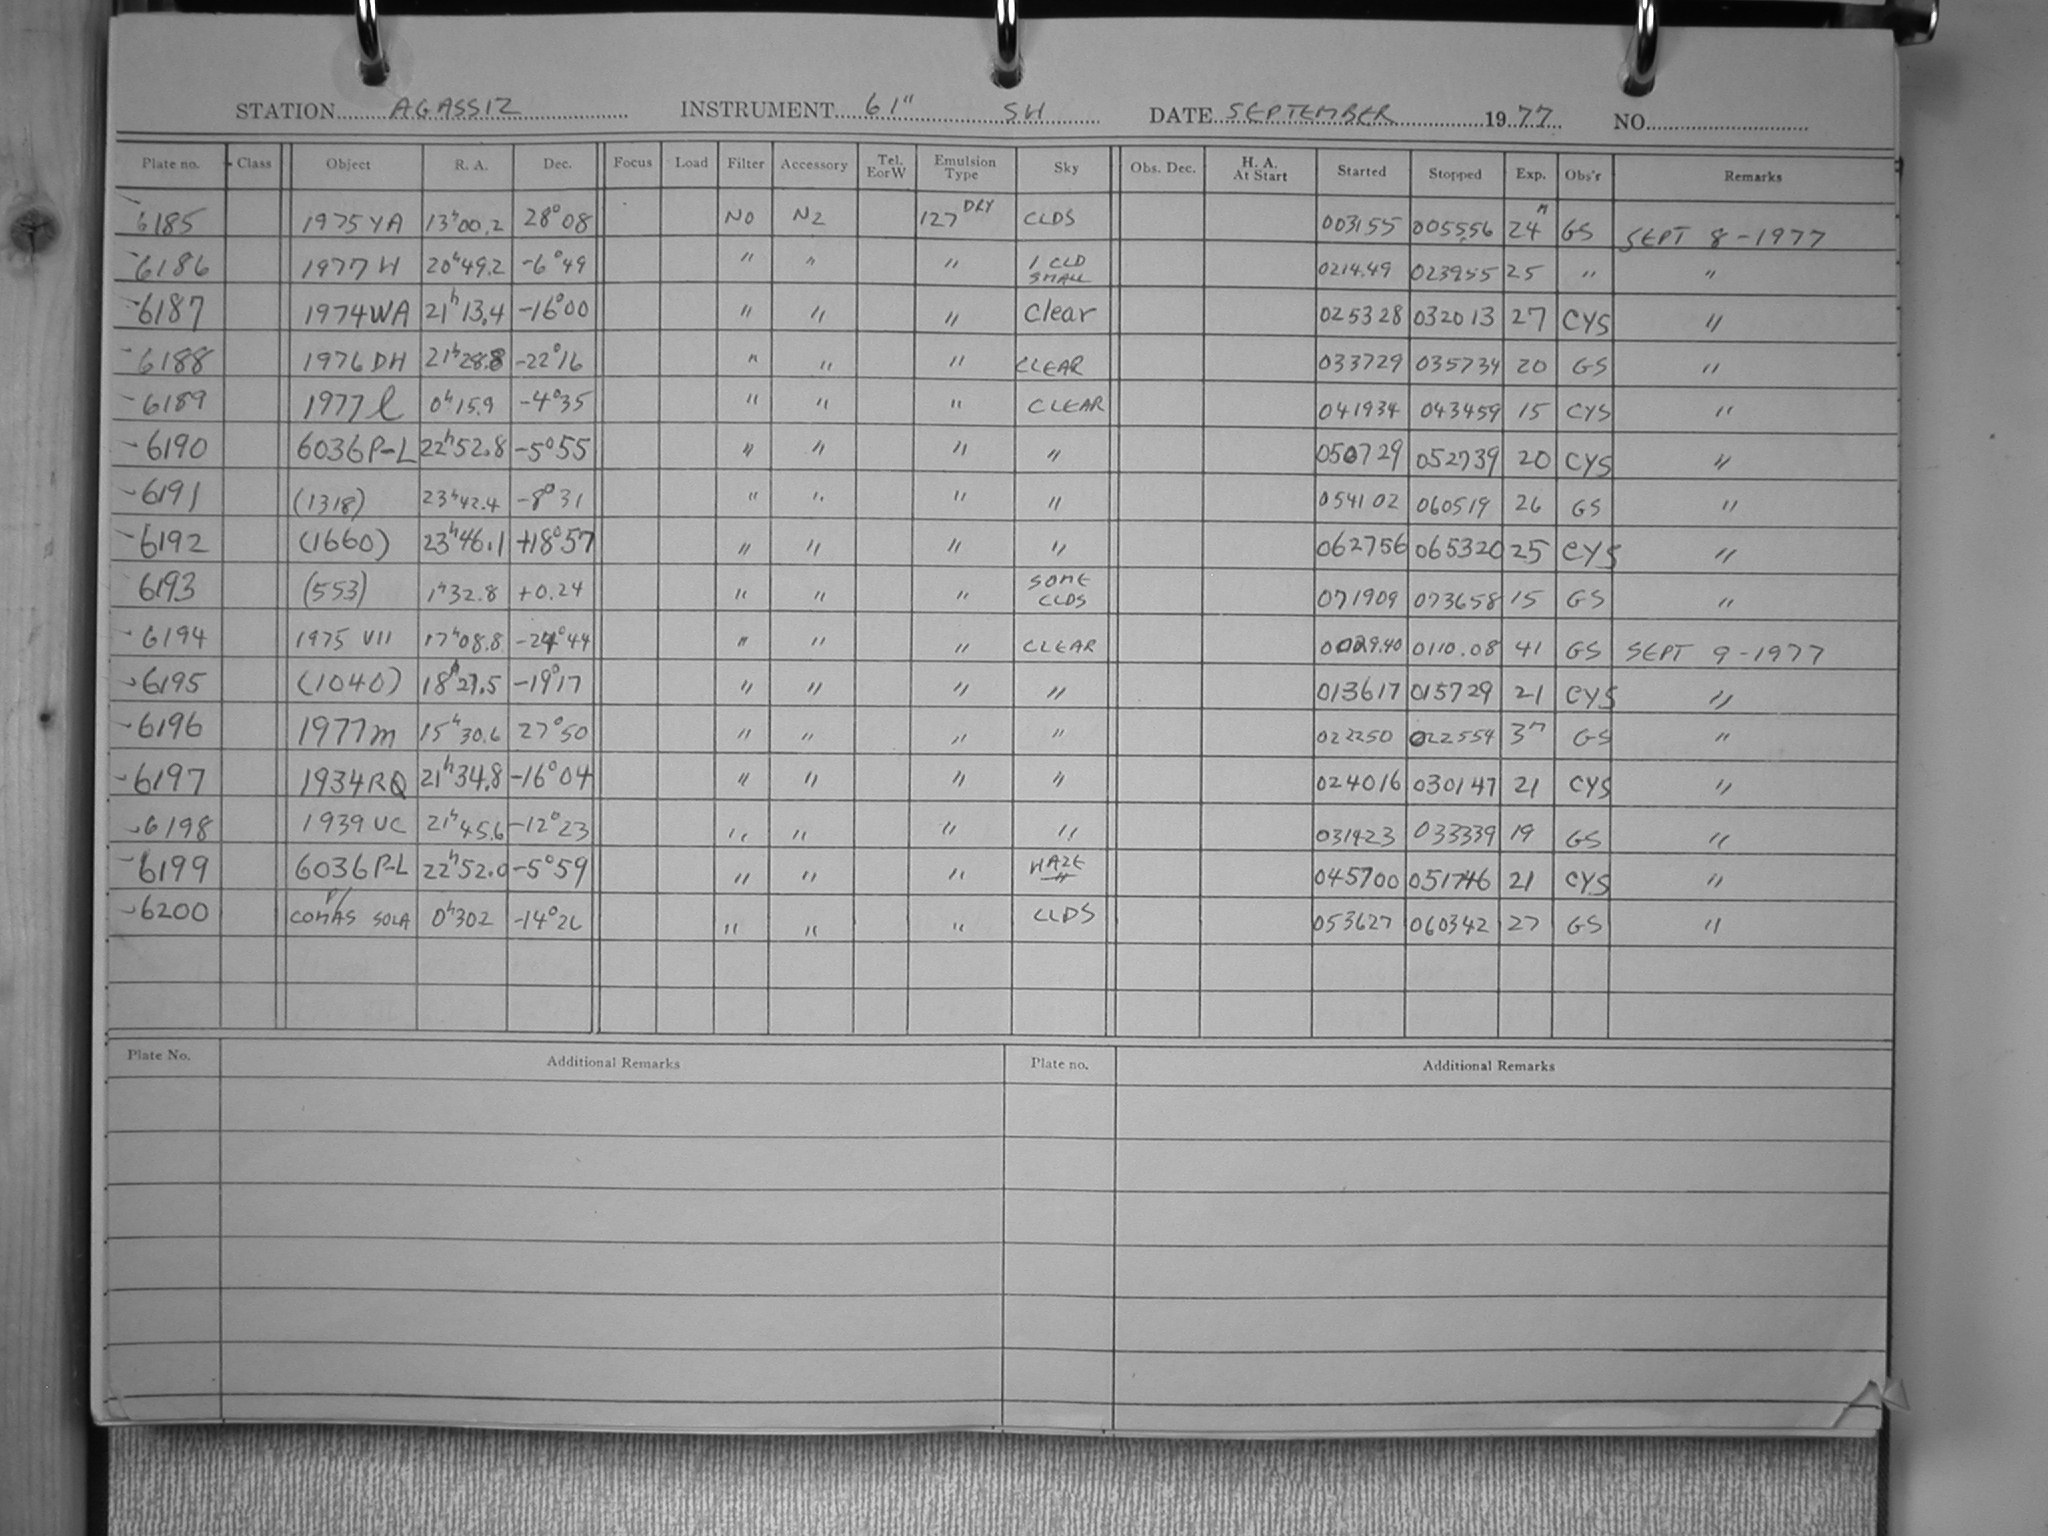 STATION AGASSIZ INSTRUMENT 61" SH DATE SEPTEMBER 1977 NO.
Plate no. Class Object R. A. Dec. Focus Load Filter Accessory Tel. EorW Emulsion Type Sky Obs. Dec. H. A. At Start Started Stopped Exp. Obs'r Remarks
6185 1975 YA 13h00.2 28°08 NO N2 127 DRY CLDS 003155 005556 24m GS SEPT 8-1977
6186 1977 H 20h49.2 -6°49 " " " 1 CLD SMALL 0214.49 023955 25 " "
6187 1974WA 21h13.4 -16°00 " " " Clear 025328 032013 27 CYS "
6188 1976 DH 21h28.8 -22°16 " " " CLEAR 033729 035734 20 GS "
6189 1977 l 0h15.9 -4°35 " " " CLEAR 041934 043459 15 CYS "
6190 6036P-L 22h52.8 -5°55 " " " " 050729 052739 20 CYS "
6191 (1318) 23h42.4 -8°31 " " " " 054102 060519 26 GS "
6192 (1660) 23h46.1 +18°57 " " " " 062756 065320 25 CYS "
6193 (553) 1h32.8 +0.24 " " " SOME CLDS 071909 073658 15 GS "
6194 1975 VII 17h08.8 -24°44 " " " CLEAR 0029.40 0110.08 41 GS SEPT 9-1977
6195 (1040) 18h27.5 -19°17 " " " " 013617 015729 21 CYS "
6196 1977m 15h30.6 27°50 " " " " 022250 022554 3m GS "
6197 1934RQ 21h34.8 -16°04 " " " " 024016 030147 21 CYS "
6198 1939 UC 21h45.6 -12°23 " " " " 031423 033339 19 GS "
6199 6036P-L 22h52.0 -5°59 " " " HAZE " 045700 051746 21 CYS "
6200 P/ COMAS SOLA 0h302 -14°26 " " " CLDS 053627 060342 27 GS "
Plate No. Additional Remarks Plate no. Additional Remarks